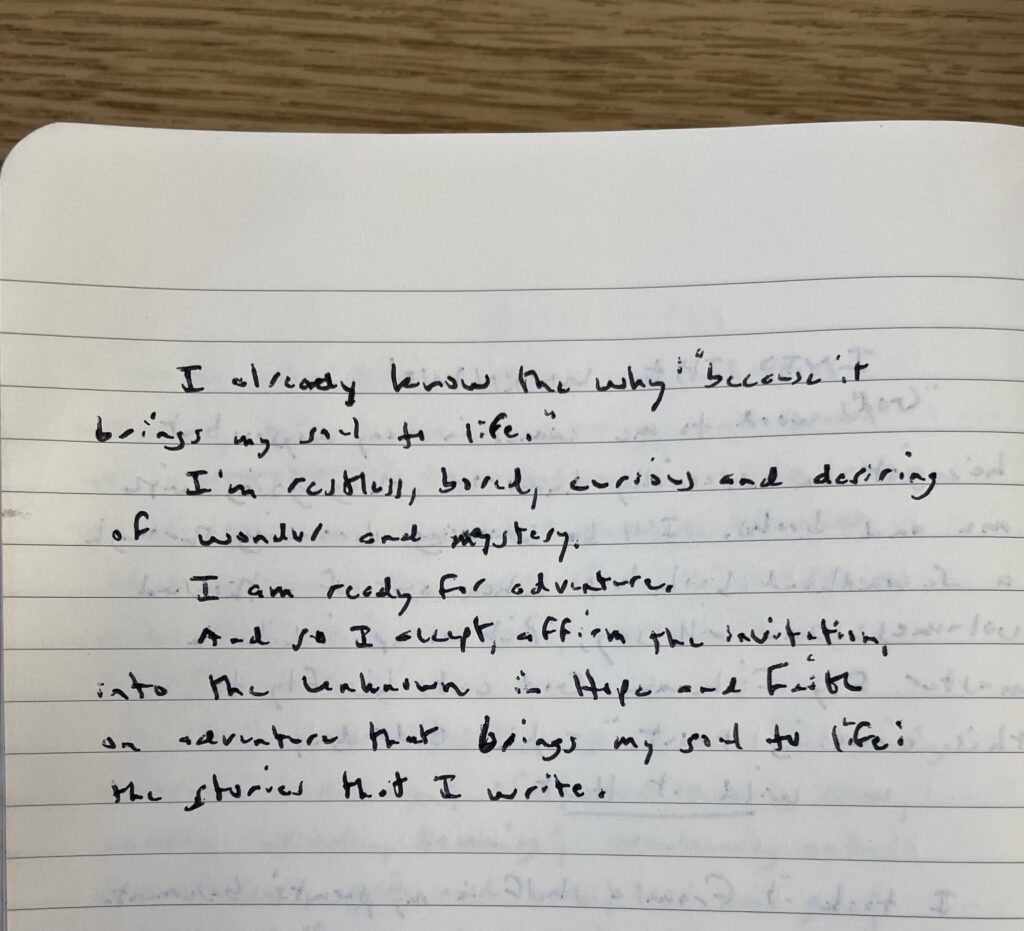 I already know the why: "because it
brings my soul to life."
I'm restless, bored, curious and desiring
of wonder and mystery.
I am ready for adventure.
And so I accept, affirm the invitation,
into the unknown in Hope and Faith
on adventure that brings my soul to life:
the stories that I write.